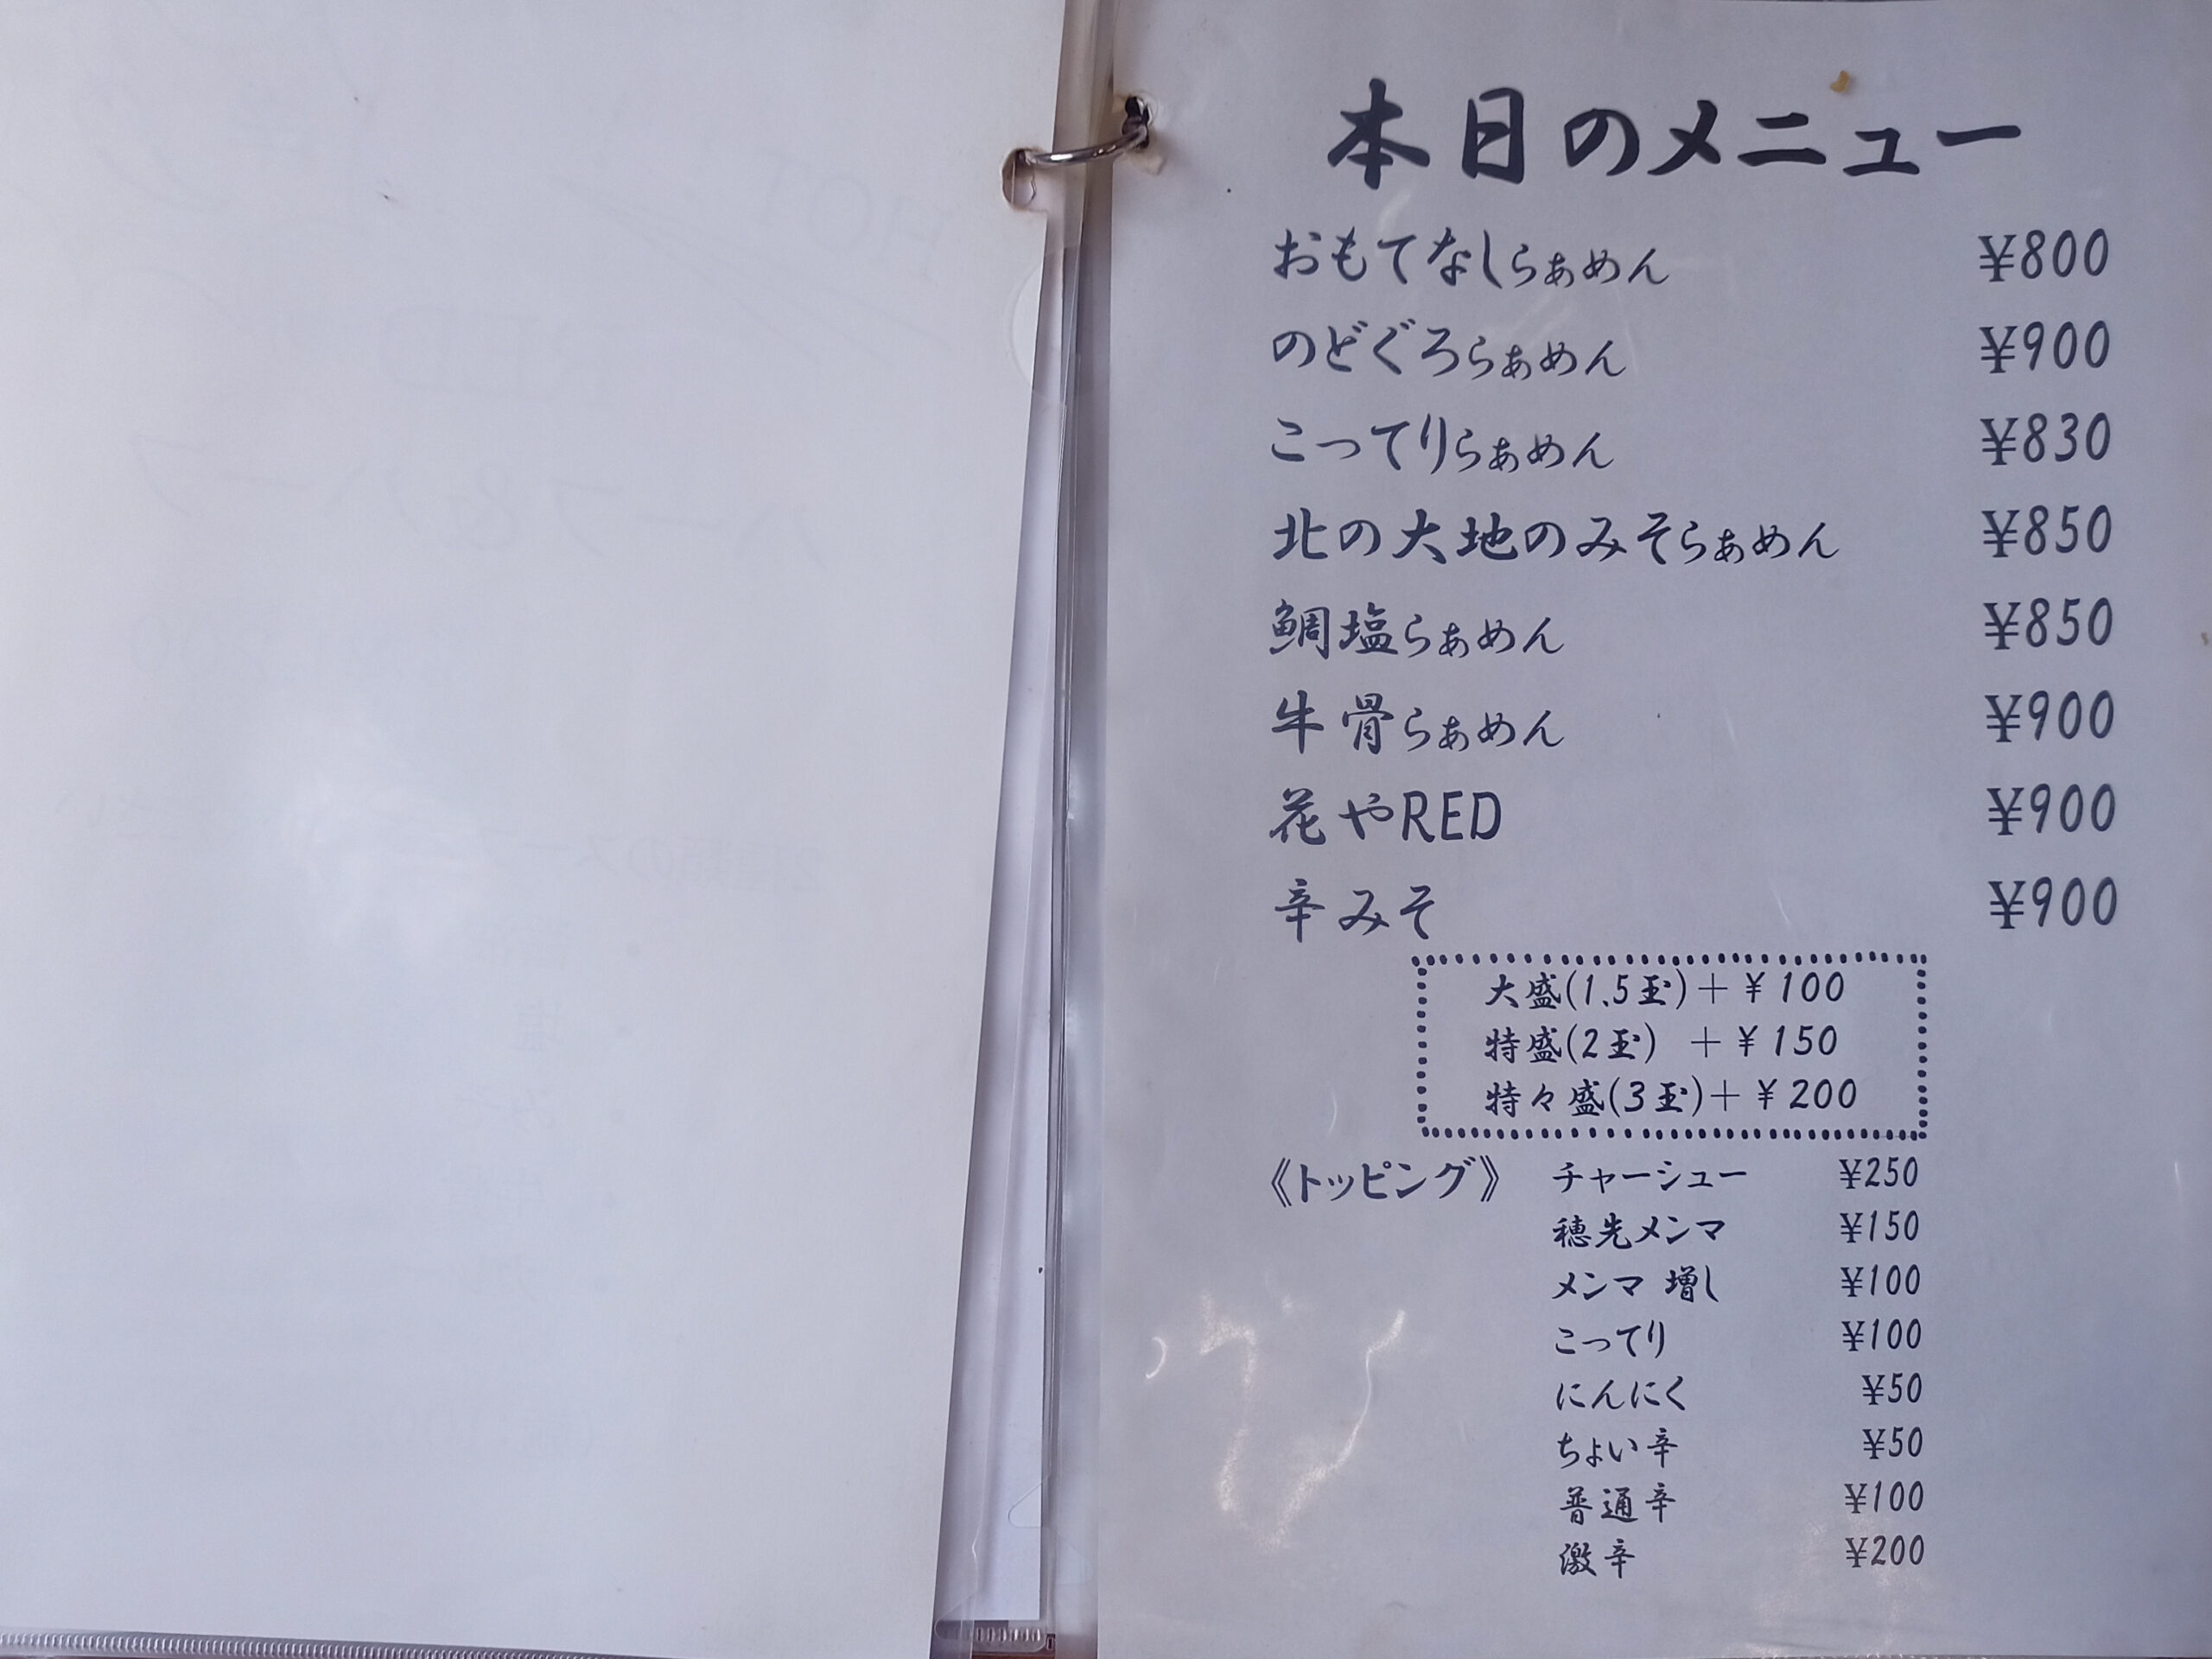 本日のメニュー
おもてなしらぁめん ¥800
のどぐろらぁめん ¥900
こってりらぁめん ¥830
北の大地のみそらぁめん ¥850
鯛塩らぁめん ¥850
牛骨らぁめん ¥900
花やRED ¥900
辛みそ ¥900
大盛(1.5玉)+¥100
特盛(2玉) +¥150
特々盛(3玉)+¥200
《トッピング》 チャーシュー ¥250
穂先メンマ ¥150
メンマ 増し ¥100
こってり ¥100
にんにく ¥50
ちょい辛 ¥50
普通辛 ¥100
激辛 ¥200